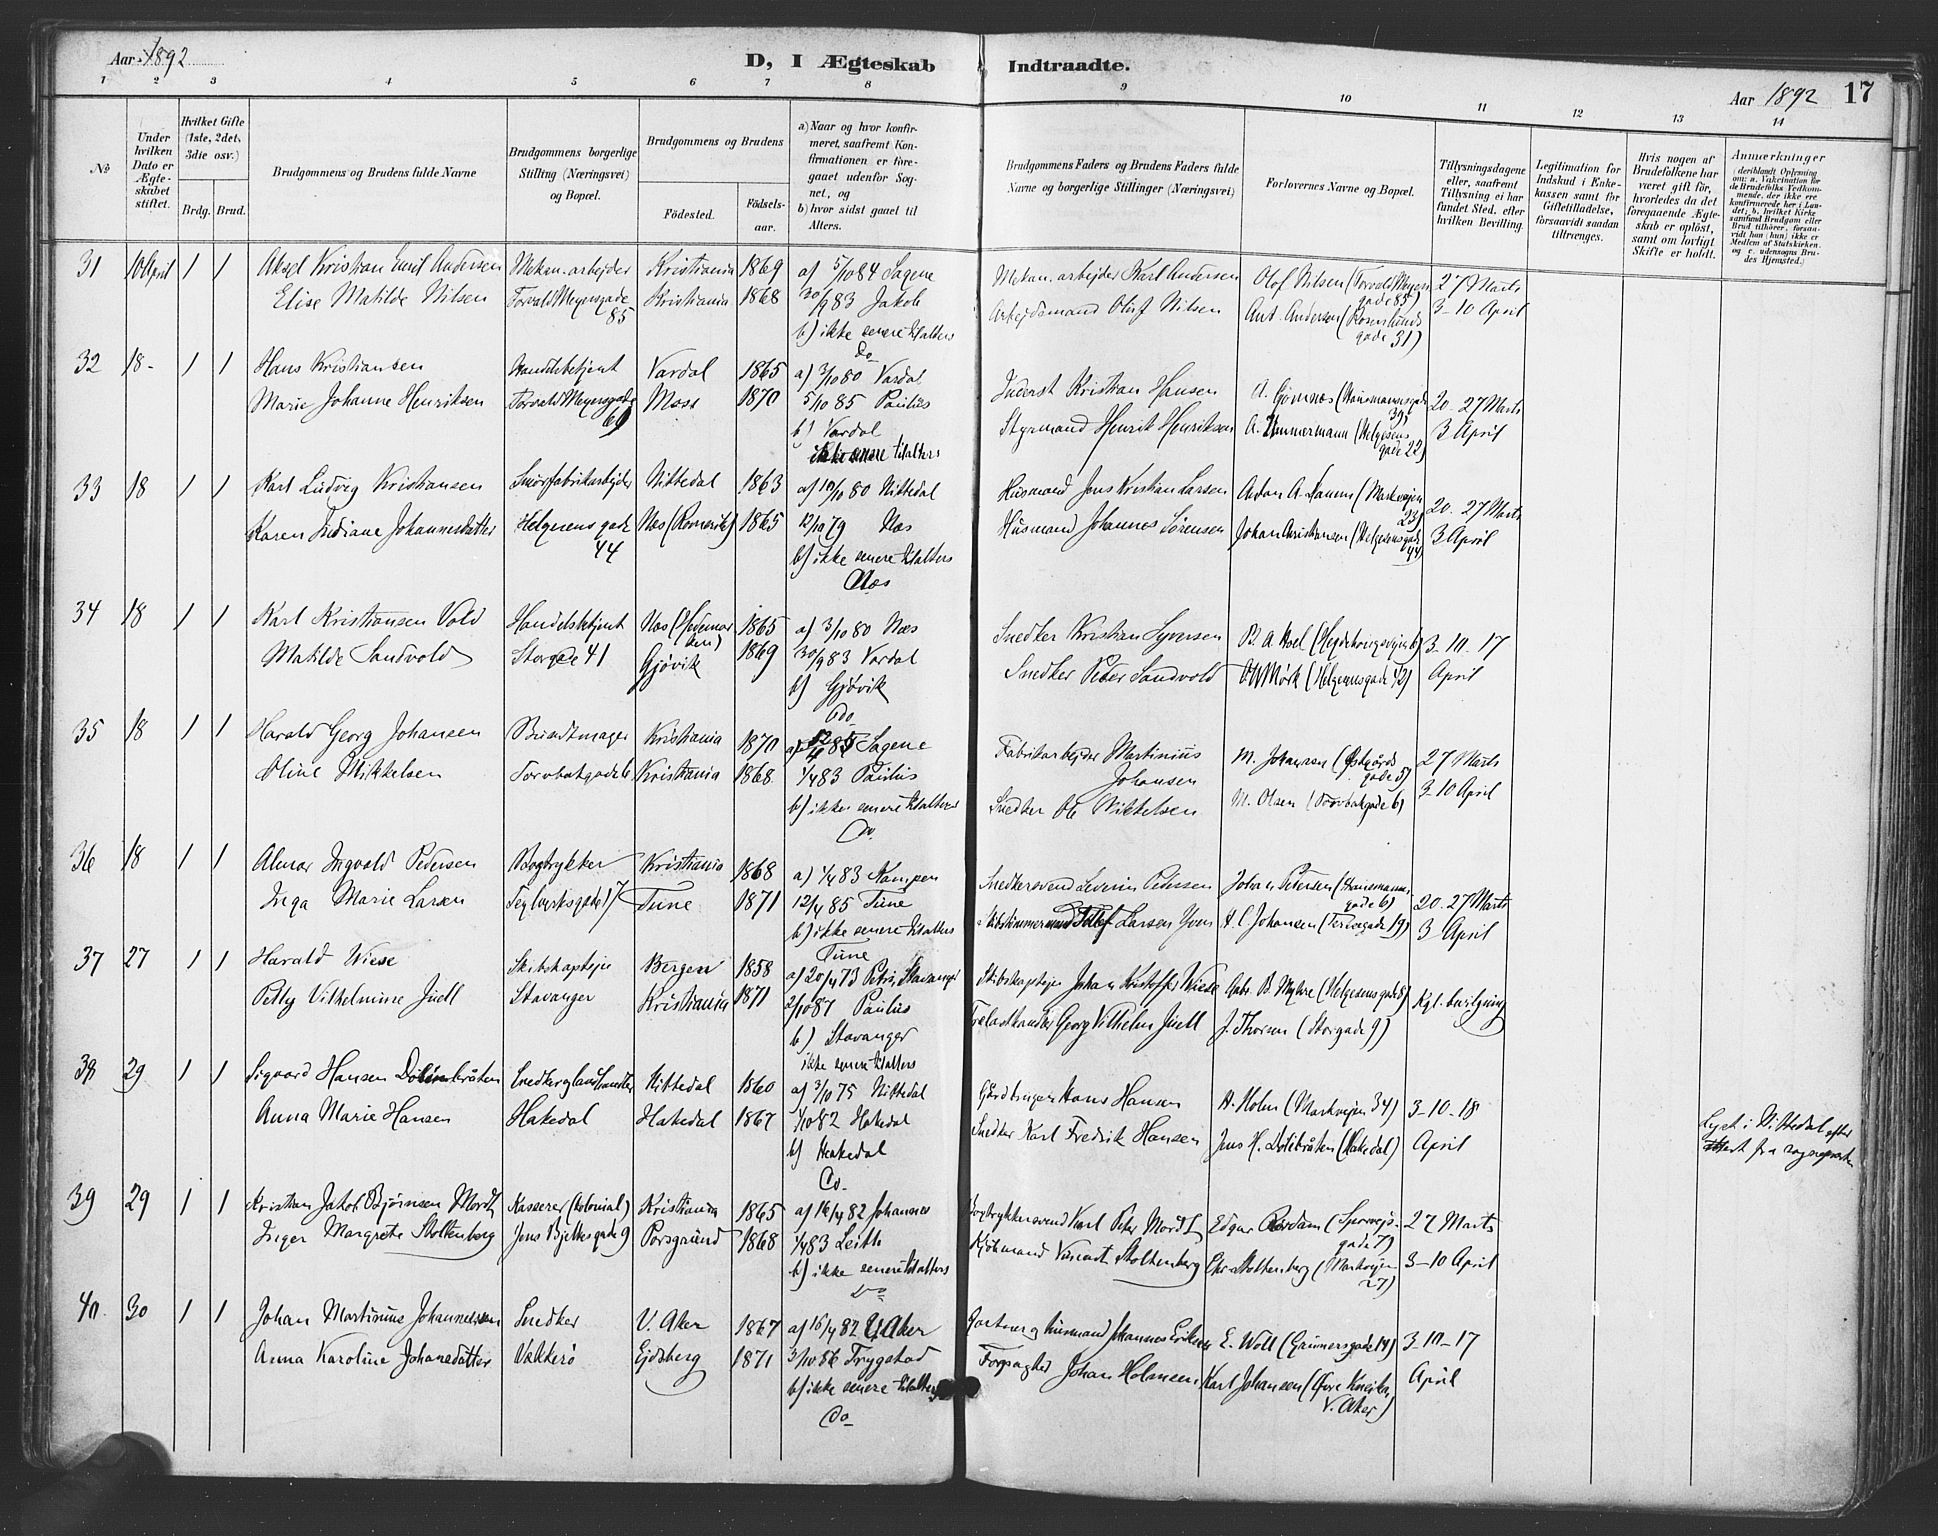 Aar 1892
D, I Ægteskab Indtraadte.
Aar 1892 17
1 2 3 4 5 6 7 8 9 10 11 12 13 14
No
Under hvilken Dato er Ægteskabet stiftet.
Hvilket Gifte (1ste, 2det, 3die osv.)
Brdg. Brud.
Brudgommens og Brudens fulde Navne
Brudgommens borgerlige Stilling (Næringsvei) og Bopæl.
Brudgommens og Brudens
Födested.
Födselsaar.
a) Naar og hvor konfirmeret, saafremt Konfirmationen er foregaaet udenfor Sognet, og
b) hvor sidst gaaet til Alters.
Brudgommens Faders og Brudens Faders fulde Navne og borgerlige Stillinger (Næringsvei)
Forlovernes Navne og Bopæl.
Tillysningsdagene eller, saafremt Tillysning ei har fundet Sted, efter hvilken Bevilling.
Legitimation for Indskud i Enkekassen samt for Giftetilladelse, forsaavidt saadan tiltrænges.
Hvis nogen af Brudefolkene har været gift før, hvorledes da det foregaaende Ægteskab er opløst, samt om lovligt Skifte er holdt.
Anmærkninger
31 10 April 1 1 Aksel Kristian Emil Andersen Mekan. arbejder Kristiania 1869 a) 5/10 84 Sagene Mekan. arbejder Karl Andersen Olof Nilsen (Torvald Meyers gade 85) 27 Marts
Elise Matilde Nilsen Torvald Meyersgade 85 Kristiania 1868 30/9 83 Jakob Arbejdsmand Oluf Nilsen Ant. Andersen (Rosenlunds gade 31) 3-10 April
b) ikke senere til alters
Do
32 18 1 1 Hans Kristiansen Handelsbetjent Vardal 1865 a) 3/10 80 Vardal Inderst Kristian Hansen 20. 27 Marts
Marie Johanne Henriksen Torvald Meyersgade Moss 1870 5/10 85 Paulus Styrmand Henrik Henriksen A. Timmermann (Helgesens gade 22) 3 April
b) Vardal
ikke senere til alters
33 18 1 1 Karl Ludvig Kristiansen Nittedal 1863 a) 10/10 80 Nittedal Husmand Jens Kristian Larsen (Markvejen 23) 20. 27 Marts
Karen Johannesdatter Helgesens gade 44 Næs (Romerike) 1865 12/10 79 Næs Husmand Johannes Sørensen Johan Christiansen (Helgesensgade 44) 3 April
b) ikke senere til alters
Næs
34 18 1 1 Karl Kristiansen Vold Handelsbetjent Næs (Hedemarken) 1865 a) 3/10 80 Næs Snedker Kristian Syversen 3-10-17
Matilde Sandvold Storgade 41 Gjøvik 1869 30/9 83 Vardal Snedker Peter Sandvold O W Mørk (Helgesensgade 42) April
b) Gjøvik
Do
35 18 1 1 Harald Georg Johansen Bundtmager Kristiania 1870 a) 85 Sagene Fabrikarbejder Martinius Johansen M. Johansen 27 Marts
Oline Mikkelsen Kristiania 1868 1/4 83 Paulus Snedker Ole Mikkelsen M. Olsen 3-10 April
b) ikke senere til alters
Do
36 18 1 1 Almar Ingvald Pedersen Bogtrykker Kristiania 1868 a) 1/4 83 Kampen Snedkersvend Severin Pedersen Johan Petersen (Hausmannsgade 6) 20. 27 Marts
Inga Marie Larsen Teglverksgade 17 Tune 1871 12/4 85 Tune Larsen H. C. Johansen 3 April
b) ikke senere til alters
Tune
37 27 1 1 Harald Wiese Skibskaptejn Bergen 1858 a) 20/4 73 Petri, Stavanger Skibskaptejn Johan Kristoffer Wiese Gabr. B. Myhre (Helgesensgade) Kgl. bevilgning
Petty Vilhelmine Juell Stavanger Kristiania 1871 2/10 87 Paulus Trælasthandler Georg Vilhelm Juell J. Thorsen (Storgade 9)
b) Stavanger
ikke senere til alters
38 29 1 1 Sigvard Hansen Nittedal 1860 a) 3/10 75 Nittedal Gårdbruger Hans Hansen A. Holm (Markvejen 34) 3-10-18
Anna Marie Hansen Hakedal Hakedal 1867 1/10 82 Hakedal Snedker Karl Fredrik Hansen Jens H. (Hakedal) April
b) Hakedal
Do
Lyst i Nittedal efter attest fra sognepresten
39 29 1 1 Kristian Jakob Bjørnsen Mordt Kasserer (Kolonial) Kristiania 1865 a) 16/4 82 Johannes Bogtrykkersvend Karl Peter Mordt Edgar (Sporvejsgade 7) 27 Marts
Inger Margrete Stoltenberg Jens Bjelkesgade 9 Porsgrund 1868 1/4 83 Leith Kjøbmand Stoltenberg Chr. Stoltenberg (Markvejen 27) 3-10 April
b) ikke senere til alters
Do
40 30 1 1 Johan Martinius Johannessen Snedker V. Aker 1867 a) 16/4 82 V. Aker Gartner og husmand Johannes Eriksen E. Woll (Grünnersgade 14) 3-10-17
Anna Karoline Johansdatter Vækkerø Ejdsberg 1871 3/10 86 Trygstad Forpagter Johan Karl Johansen (V. Aker) April
b) ikke senere til alters
Do